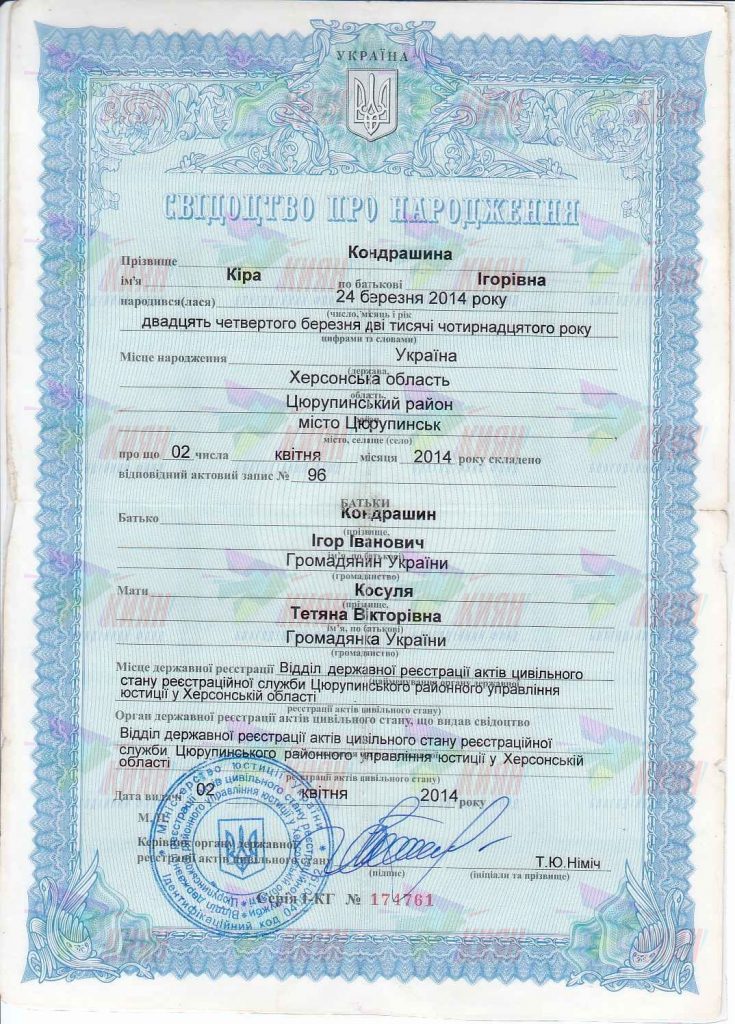 УКРАЇНА
СВІДОЦТВО ПРО НАРОДЖЕННЯ
Прізвище Кондрашина
ім'я Кіра по батькові Ігорівна
народився(лася) 24 березня 2014 року
(число, місяць і рік
двадцять четвертого березня дві тисячі чотирнадцятого року
цифрами та словами)
Місце народження Україна
(держава,
Херсонська область
область,
Цюрупинський район
район
місто Цюрупинськ
місто, селище (село)
про що 02 числа квітня місяця 2014 року складено
відповідний актовий запис № 96
БАТЬКИ
Батько Кондрашин
(прізвище,
Ігор Іванович
ім'я, по батькові)
Громадянин України
(громадянство)
Мати Косуля
(прізвище,
Тетяна Вікторівна
ім'я, по батькові)
Громадянка України
(громадянство)
Місце державної реєстрації Відділ державної реєстрації актів цивільного
(найменування органу державної
стану реєстраційної служби Цюрупинського районного управління
юстиції у Херсонській області
реєстрації актів цивільного стану)
Орган державної реєстрації актів цивільного стану, що видав свідоцтво
Відділ державної реєстрації актів цивільного стану реєстраційної
служби Цюрупинського районного управління юстиції у Херсонській
області
реєстрації актів цивільного стану)
Дата видачі 02 квітня 2014 року
М.П.
Керівник органу державної
реєстрації актів цивільного стану
Т.Ю.Німіч
(підпис) (ініціали та прізвище)
Серія І-КГ № 174761
Міністерство юстиції України
Ідентифікаційний код
КИЯН